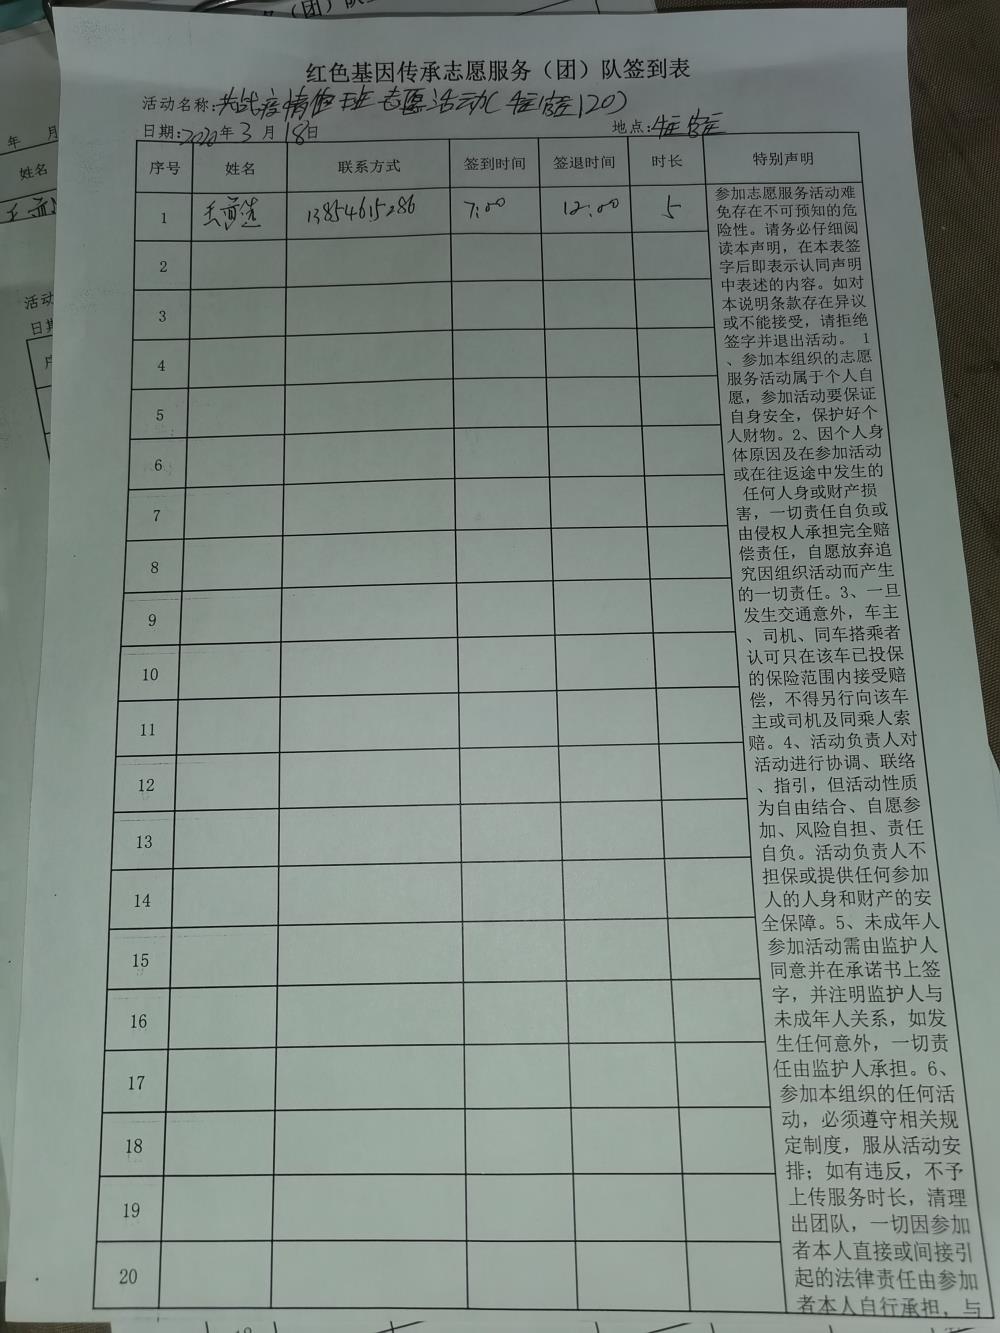 红色基因传承志愿服务（团）队签到表
活动名称:共战疫情值班志愿活动(牛庄120)
日期:2020年3月18日
地点:牛庄
序号 姓名 联系方式 签到时间 签退时间 时长 特别声明
1 13854615286 7:00 12:00 5
2
3
4
5
6
7
8
9
10
11
12
13
14
15
16
17
18
19
20
参加志愿服务活动难
免存在不可预知的危
险性。请务必仔细阅
读本声明，在本表签
字后即表示认同声明
中表述的内容。如对
本说明条款存在异议
或不能接受，请拒绝
签字并退出活动。 1
、参加本组织的志愿
服务活动属于个人自
愿，参加活动要保证
自身安全，保护好个
人财物。2、因个人身
体原因及在参加活动
或在往返途中发生的
任何人身或财产损
害，一切责任自负或
由侵权人承担完全赔
偿责任，自愿放弃追
究因组织活动而产生
的一切责任。3、一旦
发生交通意外，车主
、司机、同车搭乘者
认可只在该车已投保
的保险范围内接受赔
偿，不得另行向该车
主或司机及同乘人索
赔。4、活动负责人对
活动进行协调、联络
、指引，但活动性质
为自由结合、自愿参
加、风险自担、责任
自负。活动负责人不
担保或提供任何参加
人的人身和财产的安
全保障。5、未成年人
参加活动需由监护人
同意并在承诺书上签
字，并注明监护人与
未成年人关系，如发
生任何意外，一切责
任由监护人承担。6、
参加本组织的任何活
动，必须遵守相关规
定制度，服从活动安
排；如有违反，不予
上传服务时长，清理
出团队，一切因参加
者本人直接或间接引
起的法律责任由参加
者本人自行承担，与
年 月
姓名
活动
日期